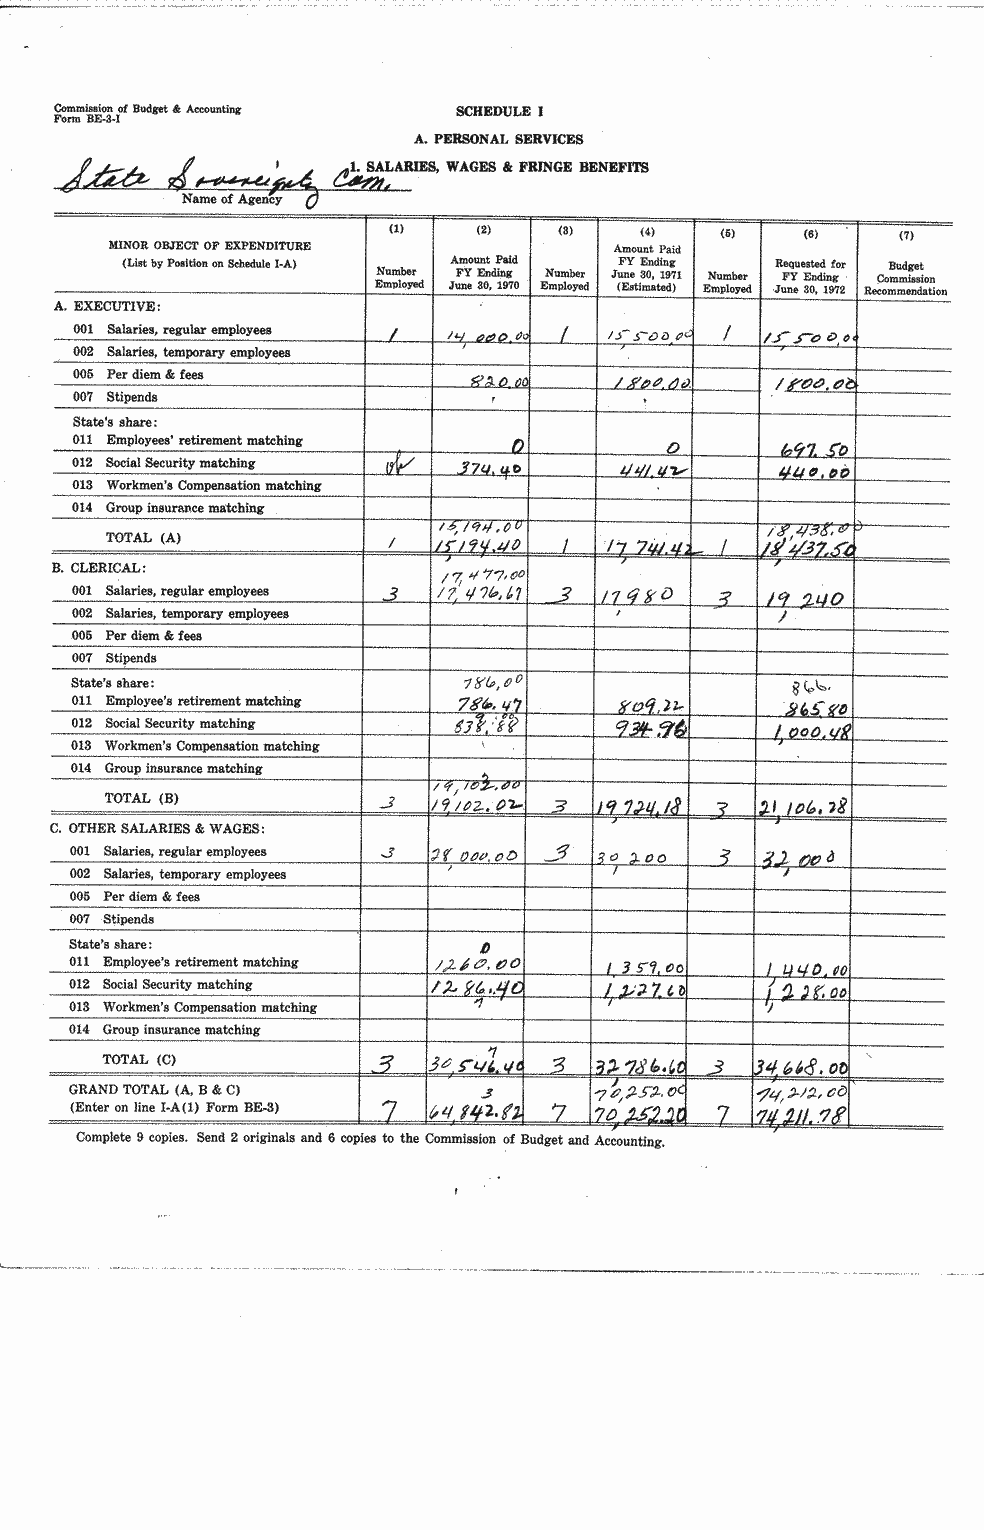 Commission of Budget & Accounting
Form BE-3-I
SCHEDULE I
A. PERSONAL SERVICES
1. SALARIES, WAGES & FRINGE BENEFITS
State Sovereignty Com.
Name of Agency
MINOR OBJECT OF EXPENDITURE (List by Position on Schedule I-A) (1) Number Employed (2) Amount Paid FY Ending June 30, 1970 (3) Number Employed (4) Amount Paid FY Ending June 30, 1971 (Estimated) (5) Number Employed (6) Requested for FY Ending June 30, 1972 (7) Budget Commission Recommendation
A. EXECUTIVE:
001 Salaries, regular employees 1 14,000.00 1 15,500.00 1 15,500.00
002 Salaries, temporary employees
005 Per diem & fees 820.00 1800.00 1800.00
007 Stipends
State's share:
011 Employees' retirement matching 0 0 697.50
012 Social Security matching 374.40 441.42 440.00
013 Workmen's Compensation matching
014 Group insurance matching
15,194.00 18,438.00
TOTAL (A) 1 15,194.40 1 17,741.42 1 18,437.50
B. CLERICAL:
17,477.00
001 Salaries, regular employees 3 17,476.67 3 17,980 3 19,240
002 Salaries, temporary employees
005 Per diem & fees
007 Stipends
State's share: 786.00 866.
011 Employee's retirement matching 786.47 809.22 865.80
012 Social Security matching 838.88 934.96 1,000.48
013 Workmen's Compensation matching
014 Group insurance matching
19,102.00
TOTAL (B) 3 19,102.02 3 19,724.18 3 21,106.28
C. OTHER SALARIES & WAGES:
001 Salaries, regular employees 3 28,000.00 3 30,200 3 32,000
002 Salaries, temporary employees
005 Per diem & fees
007 Stipends
State's share: 0
011 Employee's retirement matching 1260.00 1,359.00 1,440.00
012 Social Security matching 1286.40 1,227.60 1,228.00
013 Workmen's Compensation matching 7
014 Group insurance matching
7
TOTAL (C) 3 30,546.40 3 32,786.60 3 34,668.00
GRAND TOTAL (A, B & C) 3 70,252.00 74,212.00
(Enter on line I-A(1) Form BE-3) 7 64,842.82 7 70,252.20 7 74,211.78
Complete 9 copies. Send 2 originals and 6 copies to the Commission of Budget and Accounting.